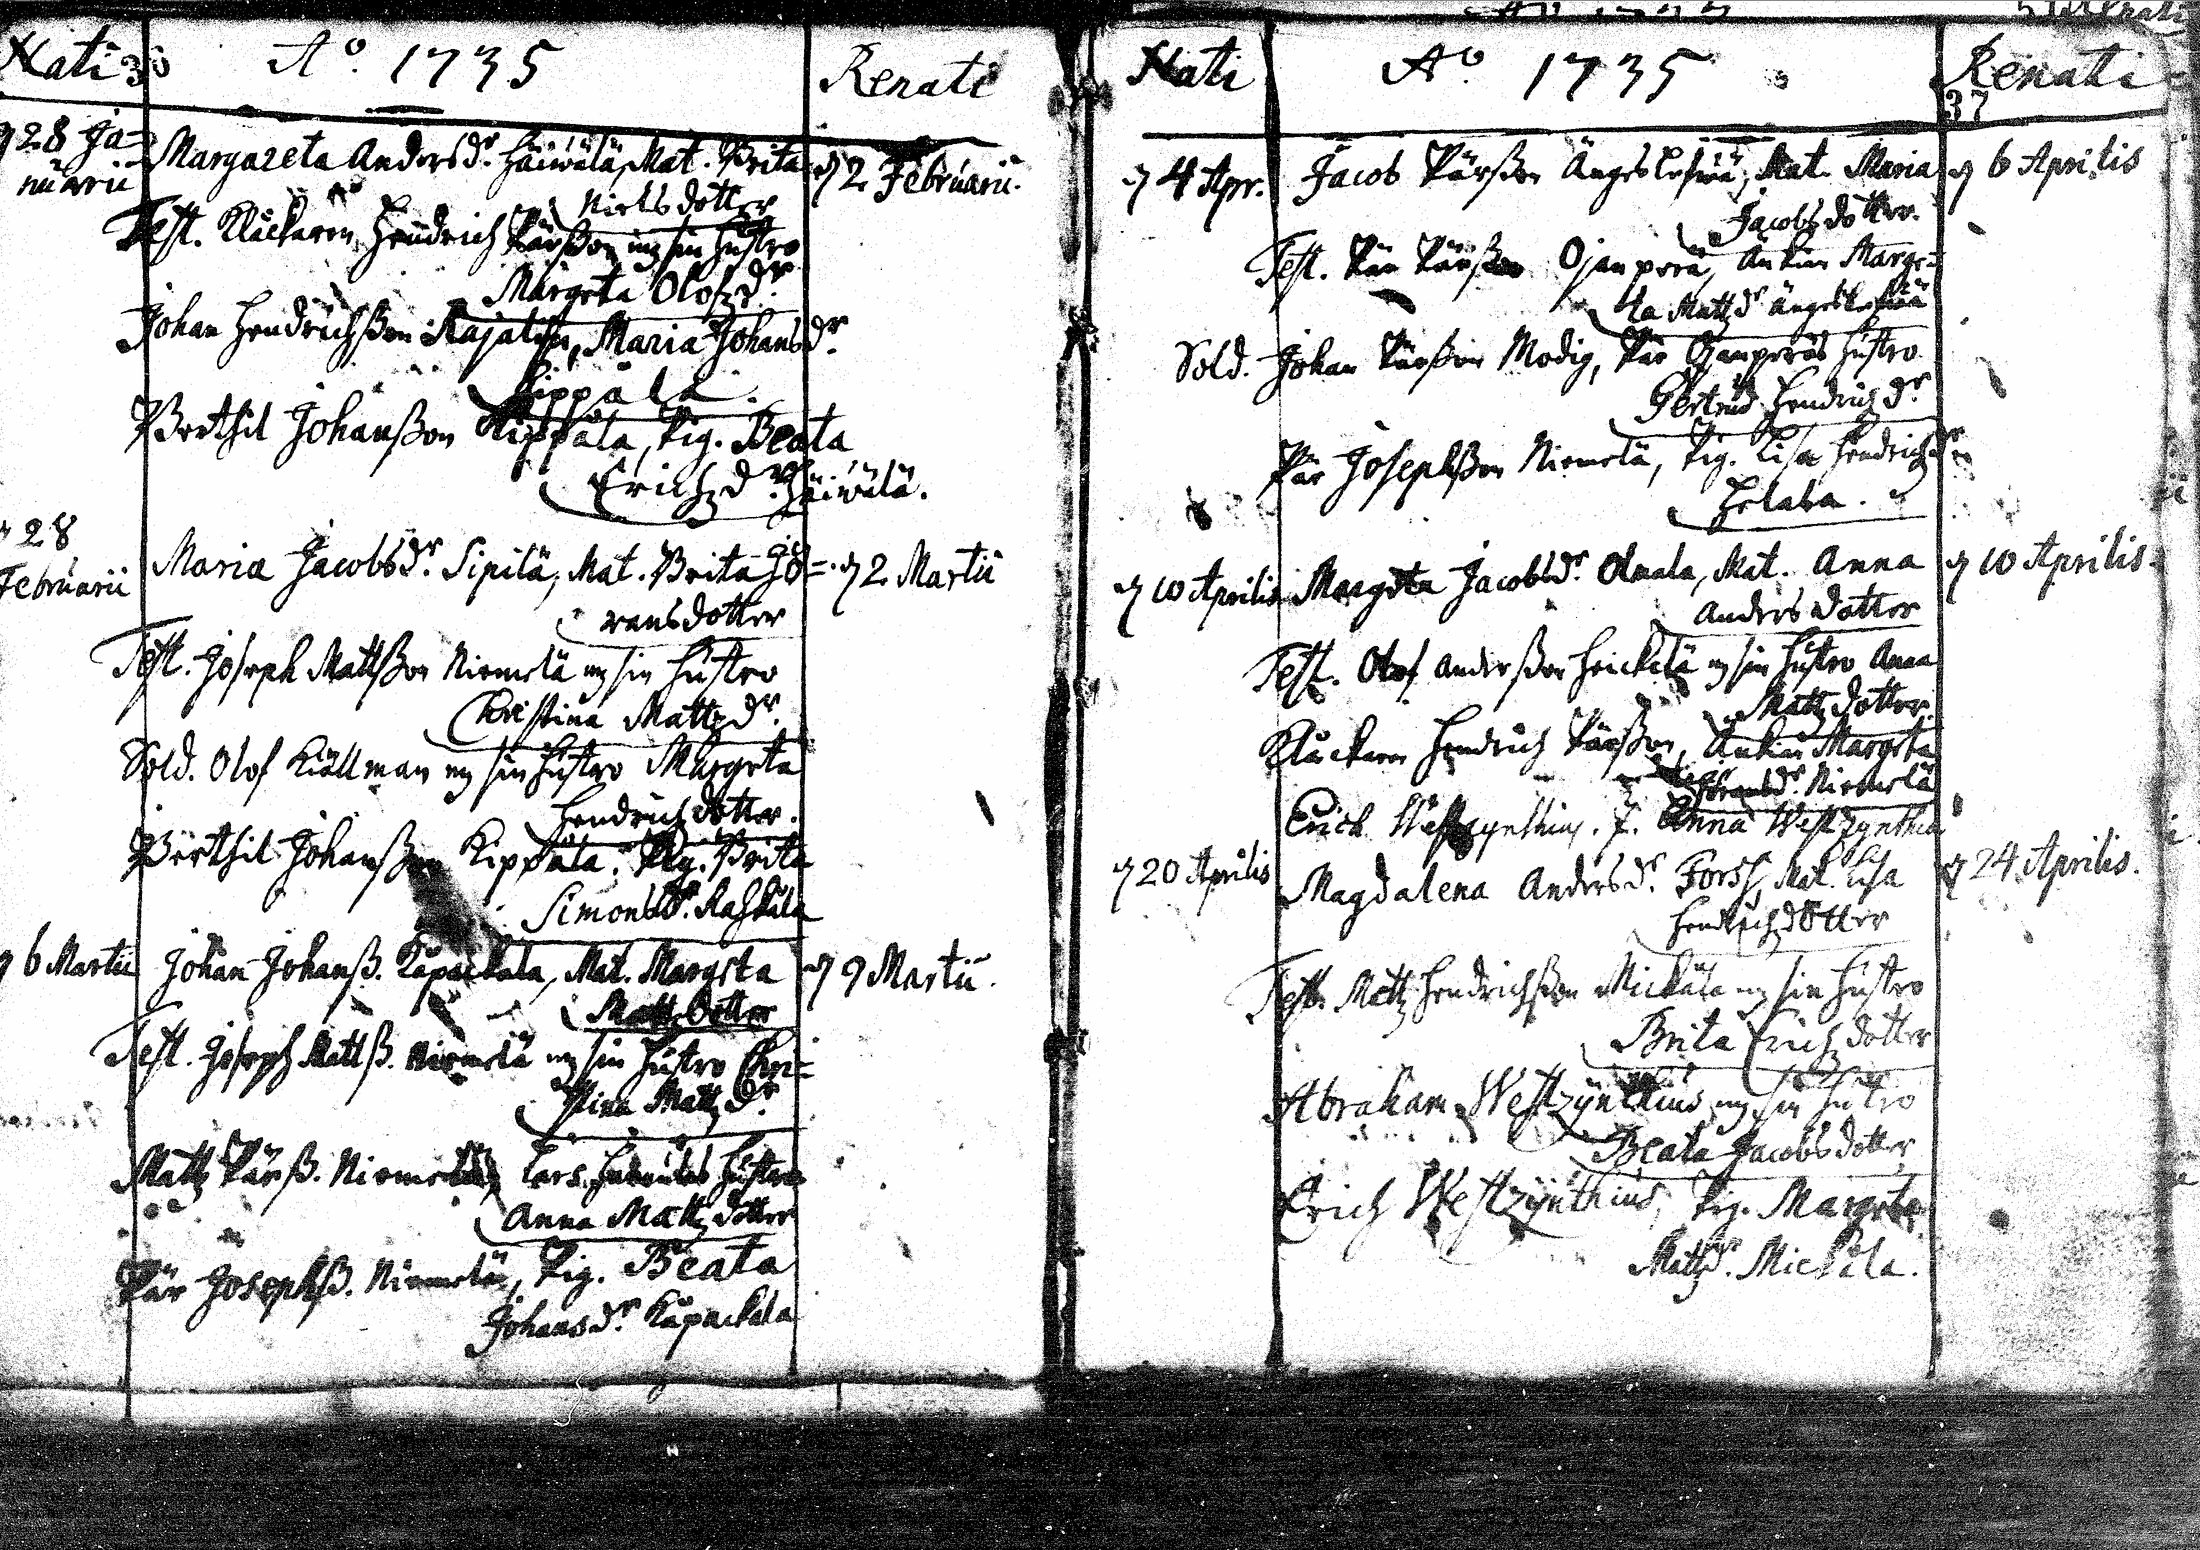 Nati 36 A:o 1735 Renati
d 28 Ja=
nuarii
Margareta Anders dr. Häiwälä, Mat. Brita
d 2 Februarii.
Niels dotter
Test. Klåckaren Hendrich Pärßon m sin hustro
Margeta Olofz dr
Johan Hendrichßon Rajatila, Maria Johans dr.
Kippåla.
Berthil Johanßon Kippåla, Pig. Beata
Erichz dr. Häiwälä.
28
Februarii
Maria Jacobs dr. Sipilä, Mat. Brita Gö=
d 2 Martii
rans dotter
Test. Joseph Mattßon Niemelä m sin hustro
Christina Mattz dr.
Sold. Olof Kiällman m sin hustro Margeta
Hendrichz dotter.
Berthil Johanßon Kippåla. Pig. Brita
Simons dr. Raskala
d 6 Martii Johan Johanß. Kåpackala, Mat. Margeta
d 9 Martii.
Mattz dotter
Test. Joseph Mattß. Niemelä m sin hustro Chri=
stina Mattz dr.
Mattz Pärß. Niemelä, Lars hustro
Anna Mattz dotter
Pär Josephß. Niemelä, Pig. Beata
Johans dr. Kåpackala
Nati A:o 1735 Renati
37
d 4 Apr. Jacob Pärßon Ängeslefwä, Mat. Maria
d 6 Aprilis
Jacobs dotter.
Test. Pär Pärßon Ojanperä, Änkian Marge=
ta Mattz dr Ängeslefwä
Sold. Johan Pärßon Modig, Pär Ojanperäs hustro
Gertrud Hendrichz dr
Pär Josephßon Niemelä, Pig. Lisa Hendrichz dr
Helaba.
d 10 Aprilis Margeta Jacobs dr. Alnala, Mat. Anna
d 10 Aprilis
Anders dotter
Test. Olof Anderßon Heickelä m sin hustro Anna
Mattz dotter.
Klåckaren Hendrich Pärßon, Änkian Margeta
Görans dr. Niemelä
Erich Westzynthius. J. Anna Westzynthia
d 20 Aprilis Magdalena Anders dr. Forss, Mat. Lisa
d 24 Aprilis.
Hendrichz dotter
Test. Mattz Hendrichßon Mickåla m sin hustro
Brita Erichz dotter
Abraham Westzynthius m sin hustro
Beata Jacobs dotter
Erich Westzynthius, Pig. Margeta
Mattz dr. Mickåla.